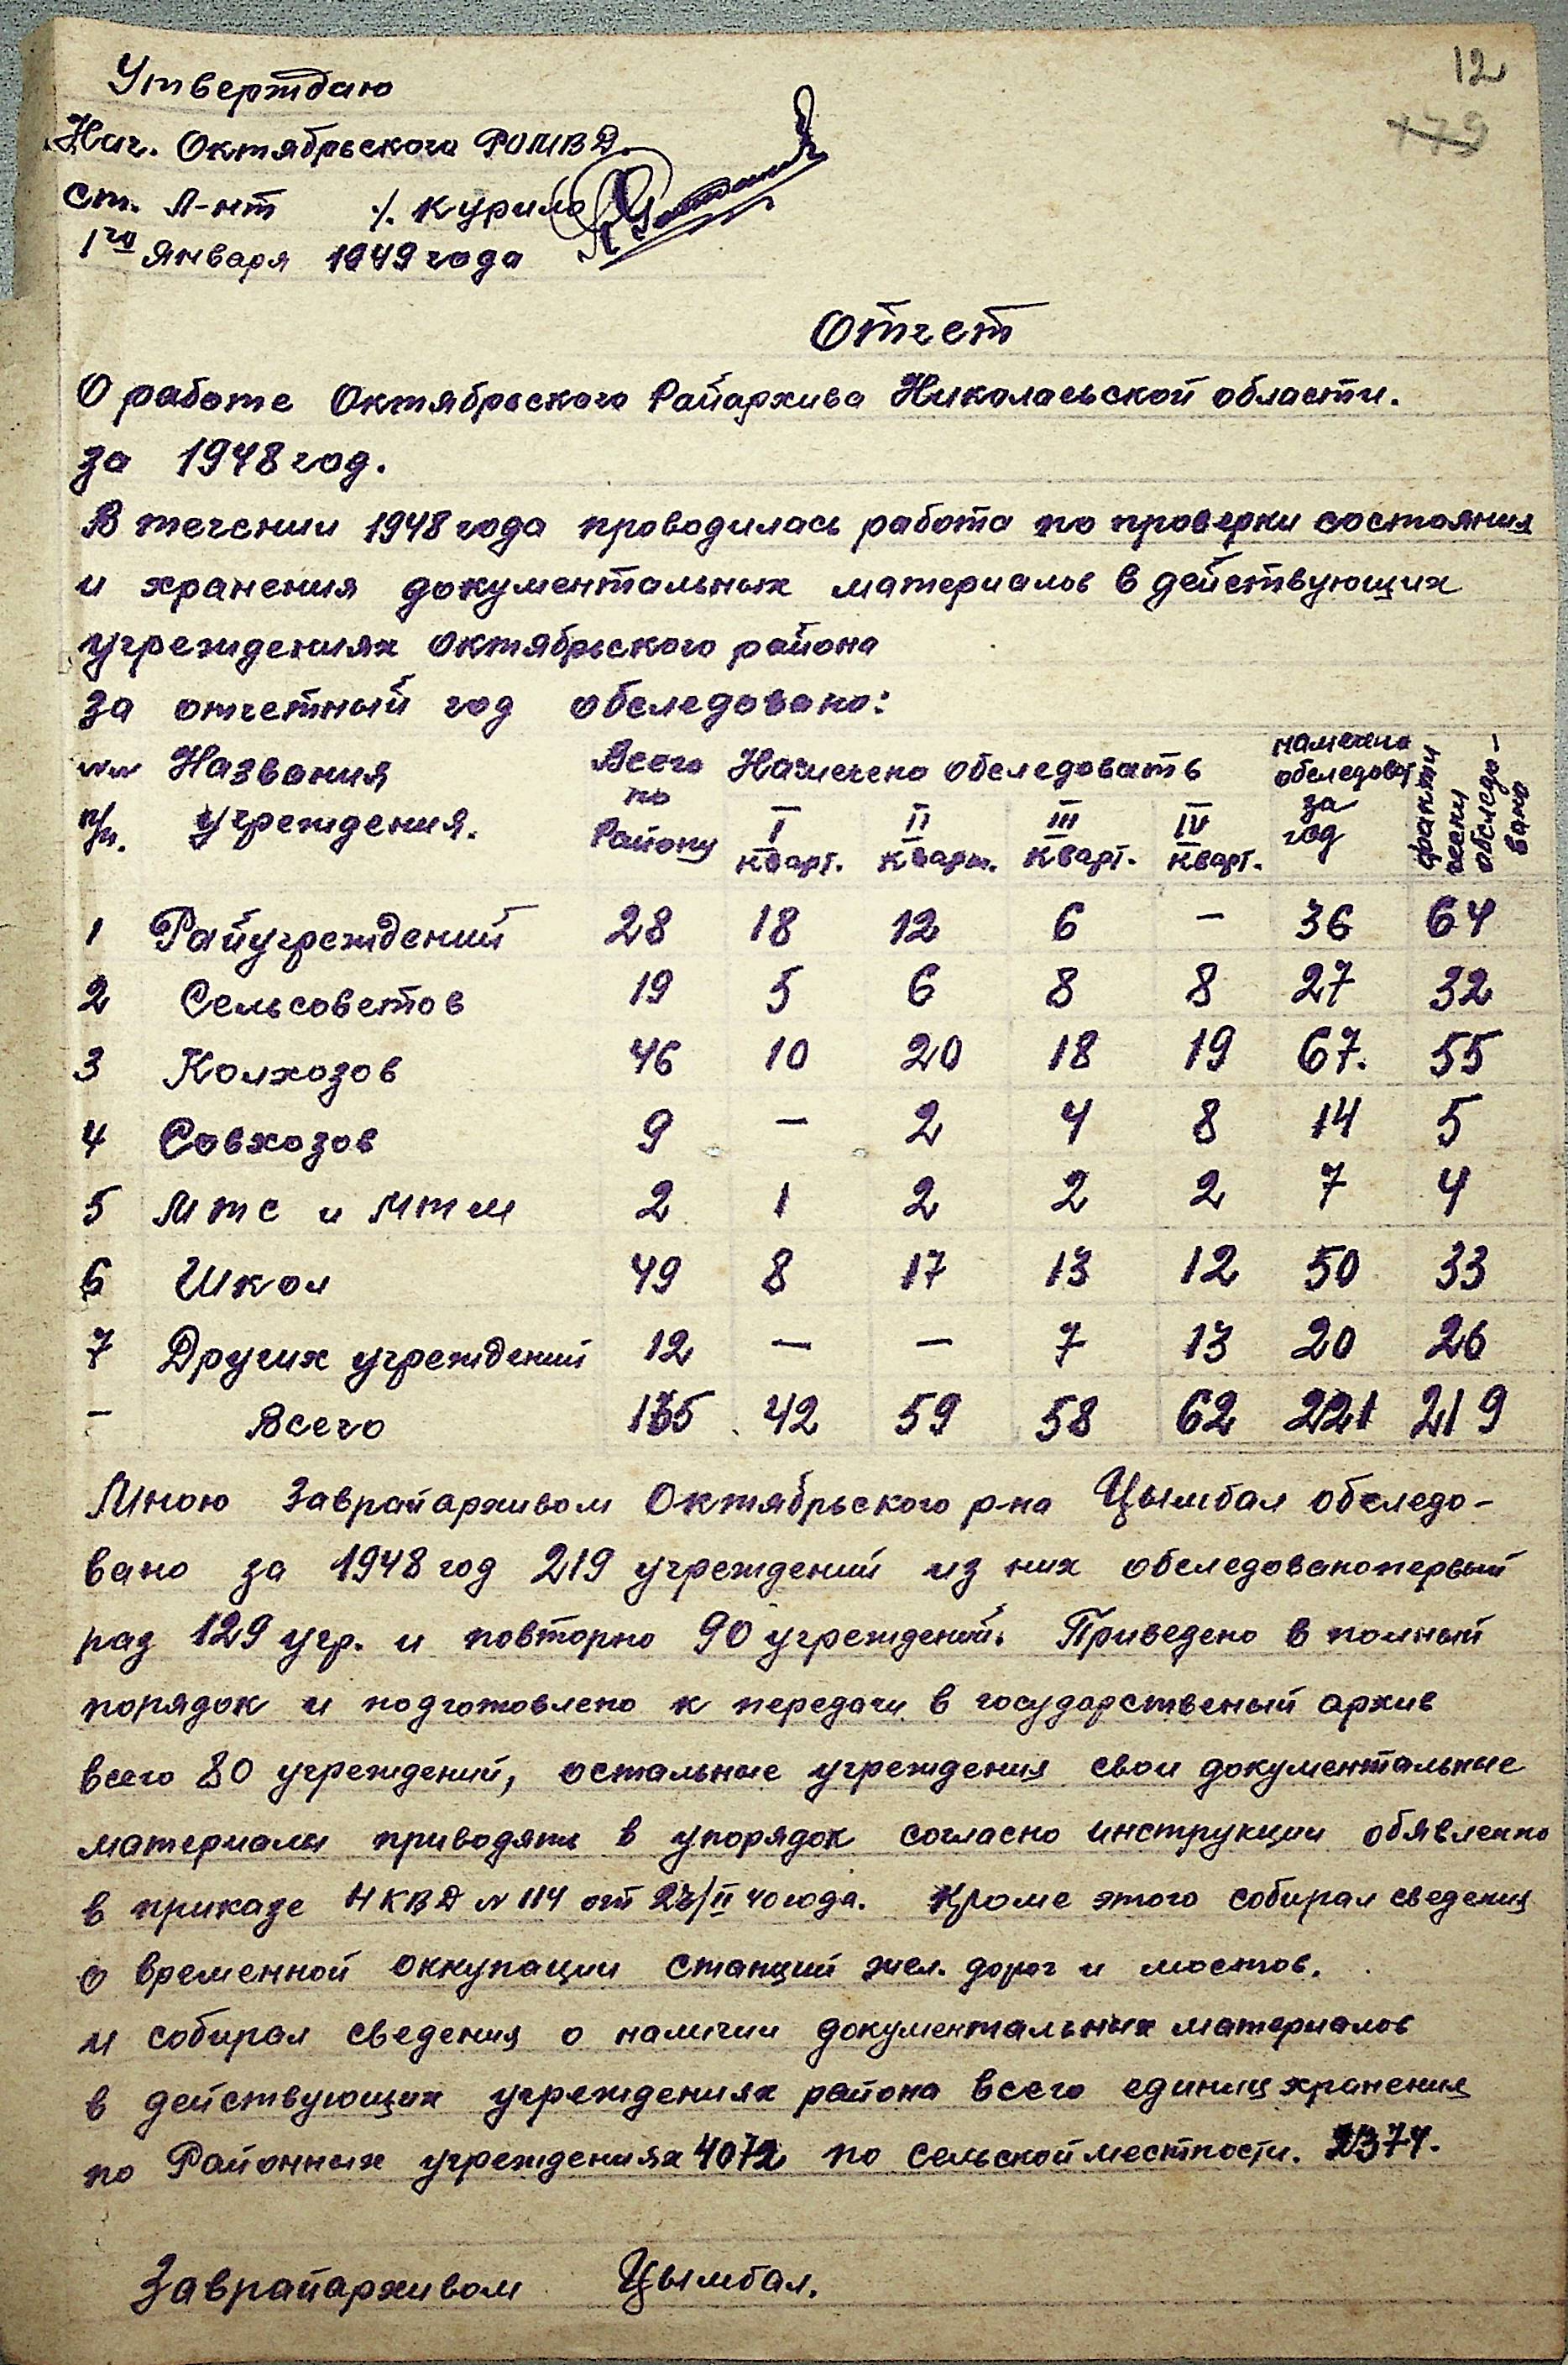 12
179
Утверждаю
Нач. Октябрьского РОМВД.
ст. л-нт /. Курило
1го января 1949 года
Отчет
О работе Октябрьского Райархива Николаевской области.
за 1948 год.
В течении 1948 года проводилась работа по проверки состояния
и хранения документальных материалов в действующих
учреждениях Октябрьского района
за отчетный год обследовано:
№№ Названия Всего Намечено обследовать намечено фактически обследо-
п/п. учреждения. по Району I кварт. II кварт. III кварт. IV кварт. обследоват за год вано
1 Райучреждений 28 18 12 6 — 36 64
2 Сельсоветов 19 5 6 8 8 27 32
3 Колхозов 46 10 20 18 19 67. 55
4 Совхозов 9 — 2 4 8 14 5
5 Мтс и Мтм 2 1 2 2 2 7 4
6 Школ 49 8 17 13 12 50 33
7 Других учреждений 12 — — 7 13 20 26
— Всего 165 42 59 58 62 221 219
Мною Заврайархивом Октябрьского р-на Цымбал обследо-
вано за 1948 год 219 учреждений из них обследовано первый
раз 129 учр. и повторно 90 учреждений. Приведено в полный
порядок и подготовлено к передачи в государственый архив
всего 80 учреждений, остальные учреждения свои документальные
материалы приводять в упорядок согласно инструкции обявленно
в приказе НКВД № 114 от /II 40 года. Кроме этого собирал сведения
о временной оккупации станций жел. дорог и мостов.
и собирал сведения о наличии документальных материалов
в действующих учреждениях района всего единиц хранения
по Районных учреждениях 4072 по сельской местности. 2374.
Заврайархивом Цымбал.